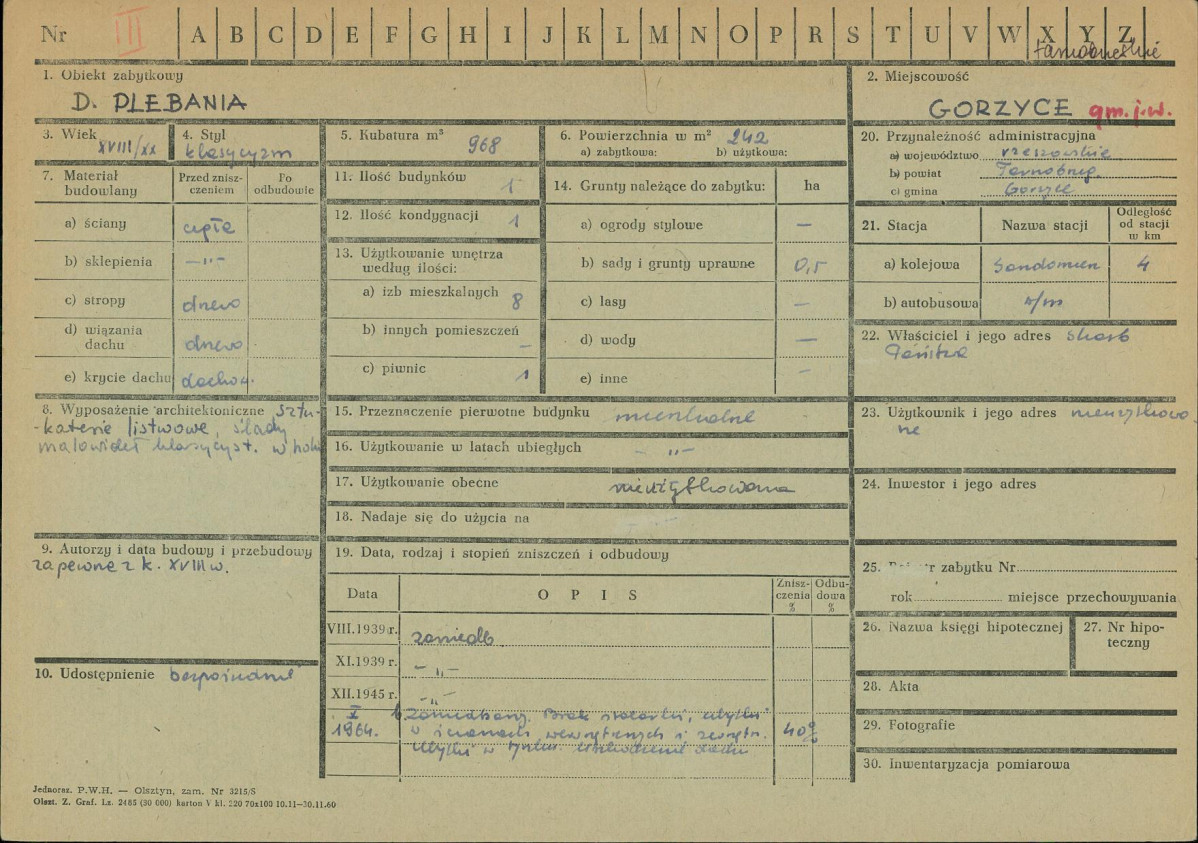 Nr III A B C D E F G H I J K L M N O P R S T U V W X Y Z
tarnobrzeskie
1. Obiekt zabytkowy
D. PLEBANIA
2. Miejscowość
GORZYCE gm. j.w.
3. Wiek XVIII/XX
4. Styl klasycyzm
5. Kubatura m³ 968
6. Powierzchnia w m² 242
a) zabytkowa: b) użytkowa:
7. Materiał budowlany
Przed zniszczeniem
Po odbudowie
a) ściany cegła
b) sklepienia —"—
c) stropy drewo
d) wiązania dachu drewo
e) krycie dachu dachów.
8. Wyposażenie architektoniczne sztu-
-katerie listwowe, ślady
malowideł klasycyst. w holu
9. Autorzy i data budowy i przebudowy
zapewne z k. XVIII w.
10. Udostępnienie bezpośrednie
11. Ilość budynków 1
12. Ilość kondygnacji 1
13. Użytkowanie wnętrza
według ilości:
a) izb mieszkalnych 8
b) innych pomieszczeń —
c) piwnic 1
14. Grunty należące do zabytku: ha
a) ogrody stylowe —
b) sady i grunty uprawne 0,5
c) lasy —
d) wody —
e) inne —
15. Przeznaczenie pierwotne budynku mieszkalne
16. Użytkowanie w latach ubiegłych - „ -
17. Użytkowanie obecne nieużytkowana
18. Nadaje się do użycia na
19. Data, rodzaj i stopień zniszczeń i odbudowy
Data O P I S Zniszczenia % Odbudowa %
VIII.1939 r. zaniedb
XI.1939 r. - „ -
XII.1945 r. - „ -
X 1964. Zaniedbany. Brak stolarki, ubytki
w ścianach wewnętrznych i zewnętr. 40%
Ubytki w tynku. Uszkodzenie dachu
20. Przynależność administracyjna
a) województwo rzeszowskie
b) powiat Tarnobrzeg.
c) gmina Gorzyce
21. Stacja Nazwa stacji Odległość od stacji w km
a) kolejowa Sandomierz 4
b) autobusowa n/m
22. Właściciel i jego adres Skarb
Państwa
23. Użytkownik i jego adres nieużytkowa-
ne
24. Inwestor i jego adres
25. zabytku Nr
rok miejsce przechowywania
26. Nazwa księgi hipotecznej
27. Nr hipoteczny
28. Akta
29. Fotografie
30. Inwentaryzacja pomiarowa
Jednoraz. P.W.H. — Olsztyn, zam. Nr 3215/S
Olszt. Z. Graf. Lz. 2485 (30 000) karton V kl. 220 70x100 10.11—30.11.60